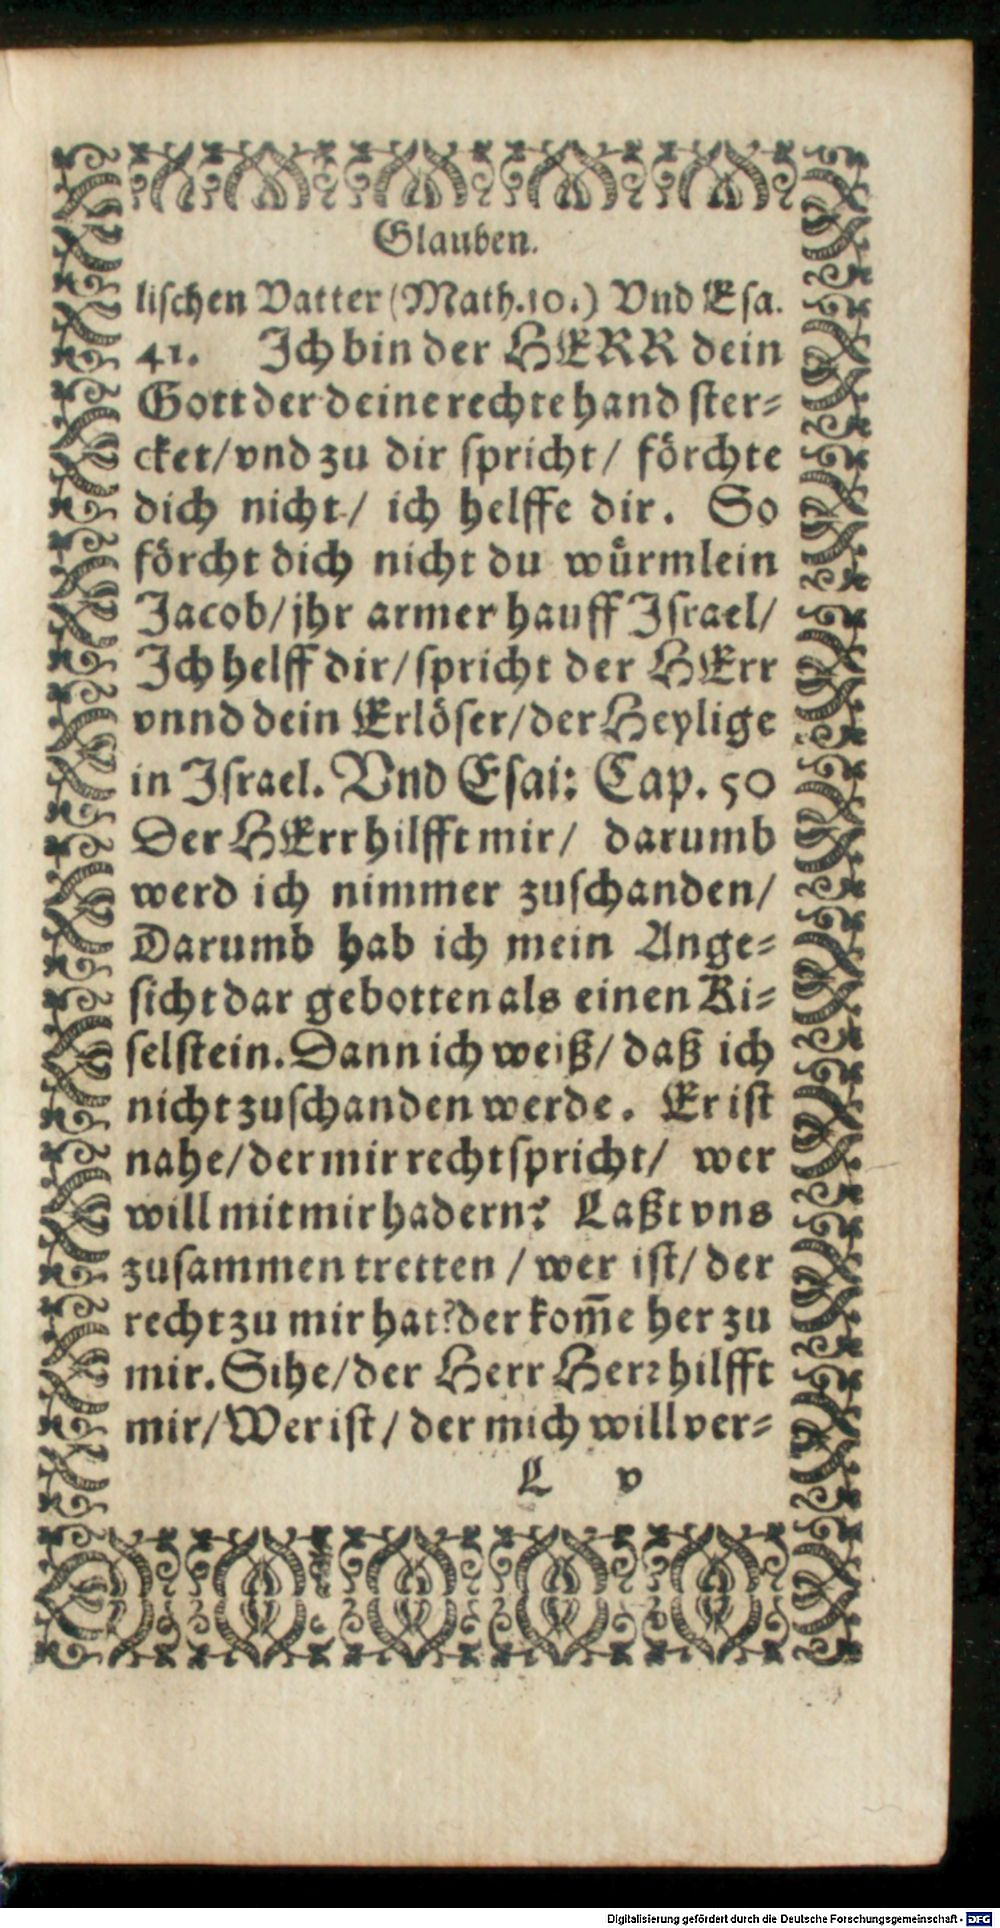 Glauben.
lischen Vatter (Math.10.) Vnd Esa.
41. Ich bin der HERR dein
Gott der deine rechte hand ster-
cket/vnd zu dir spricht/ förchte
dich nicht/ ich helffe dir. So
förcht dich nicht du würmlein
Jacob/jhr armer hauff Israel/
Ich helff dir/spricht der HErr
vnnd dein Erlöser/der Heylige
in Israel. Vnd Esai: Cap. 50
Der HErr hilfft mir/ darumb
werd ich nimmer zuschanden/
Darumb hab ich mein Ange-
sicht dar gebotten als einen Ki-
selstein. Dann ich weiß/ daß ich
nicht zuschanden werde. Er ist
nahe/der mir recht spricht/ wer
will mit mir hadern? Laßt vns
zusammen tretten / wer ist/ der
recht zu mir hat? der kom̅e her zu
mir. Sihe/der Herr Herr hilfft
mir/Wer ist/ der mich will ver-
L v
Digitalisierung gefördert durch die Deutsche Forschungsgemeinschaft - DFG